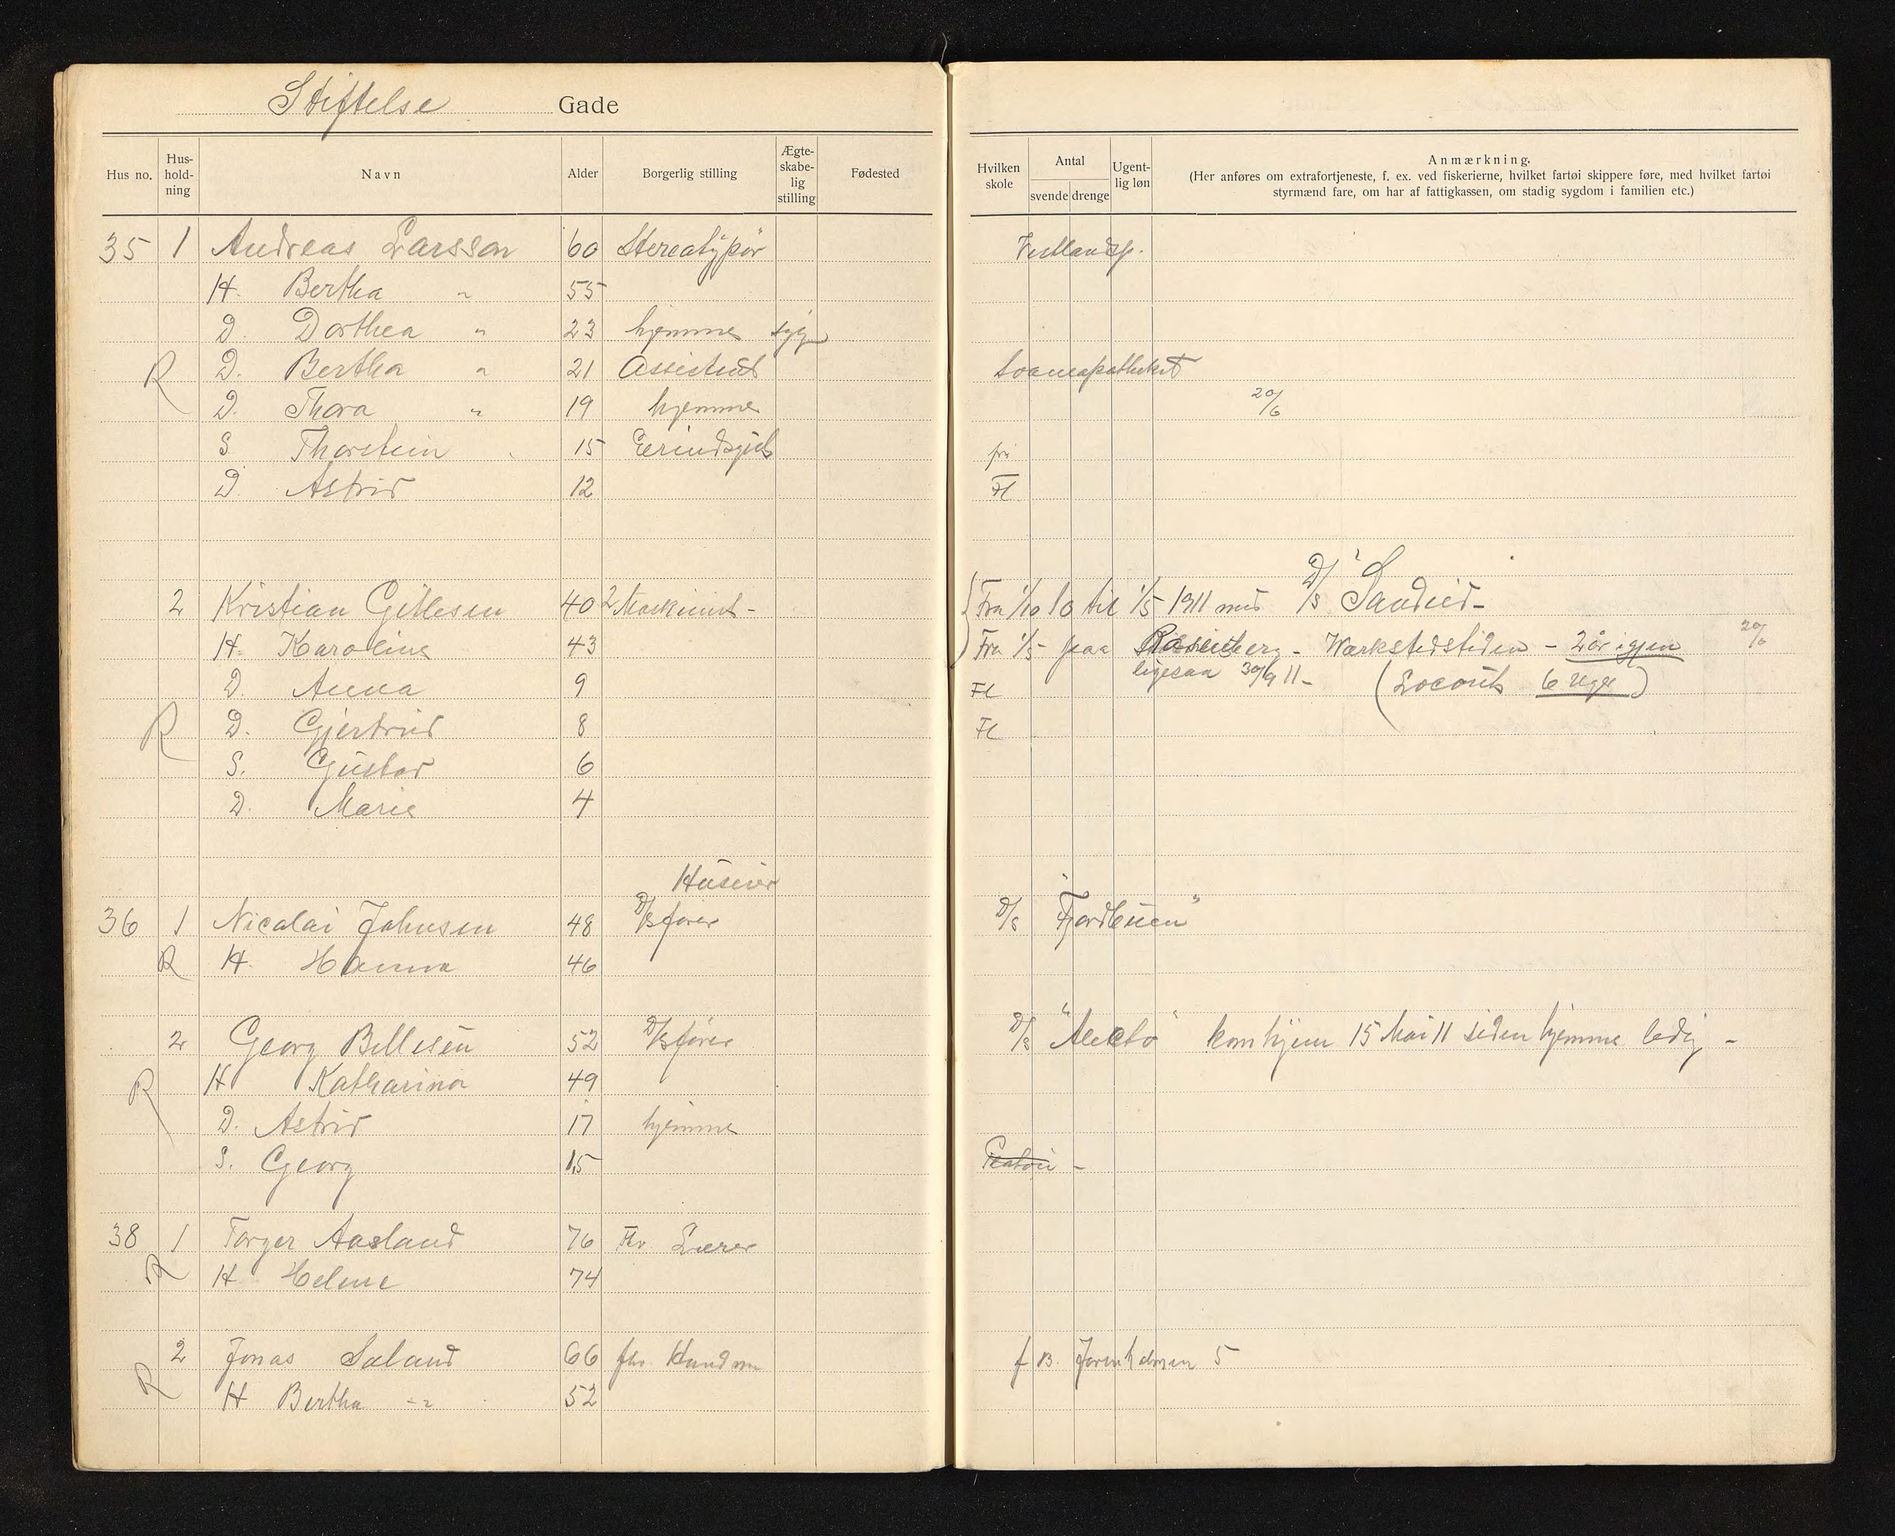 Stiftelse Gade
Hus no. Hus-hold-ning Navn Alder Borgerlig stilling Ægte-skabe-lig stilling Fødested
35 1 Andreas Larsson 60 Stereotypør
H. Bertha " 55
D. Dorthea " 23 hjemme syg
R D. Bertha " 21 Assistent
D. Thora " 19 hjemme
S Thorstein 15 Erindsgut
D. Astrid 12
2 Kristian Gillesen 40 2 Maskinist -
H. Karoline 43
D. Anna 9
R D. Gjertrud 8
S. Gustav 6
D. Marie 4
Huseier
36 1 Nicolai Johnsen 48 D/s fører
R H. Hanna 46
2 Georg Bellesen 52 D/s fører
H Katharina 49
R D. Astrid 17 hjemme
S. Georg 15
38 1 Torger Aasland 76 Fhv. Lærer
R H Helene 74
2 Jonas Sæland 66 fhv.
R H Bertha -"- 52
Hvilken skole Antal svende drenge Ugent-lig løn Anmærkning.
(Her anføres om extrafortjeneste, f. ex. ved fiskerierne, hvilket fartøi skippere føre, med hvilket fartøi
styrmænd fare, om har af fattigkassen, om stadig sygdom i familien etc.)
Vestlandsp.
Svaneapotheket
20/6
fri
Fl
Fra 1/10 10 til 1/5 1911 med D/s "Sandeid -
Fra 1/5 paa Rosenberg - Værkstedstiden - 2 år igjen 20/6
ligesaa 30/9 11 -
Fl
Fl
D/s "Fjordbuen"
D/s "Alecto" kom hjem 15 Mai 11 siden hjemme ledig -
f B. 5